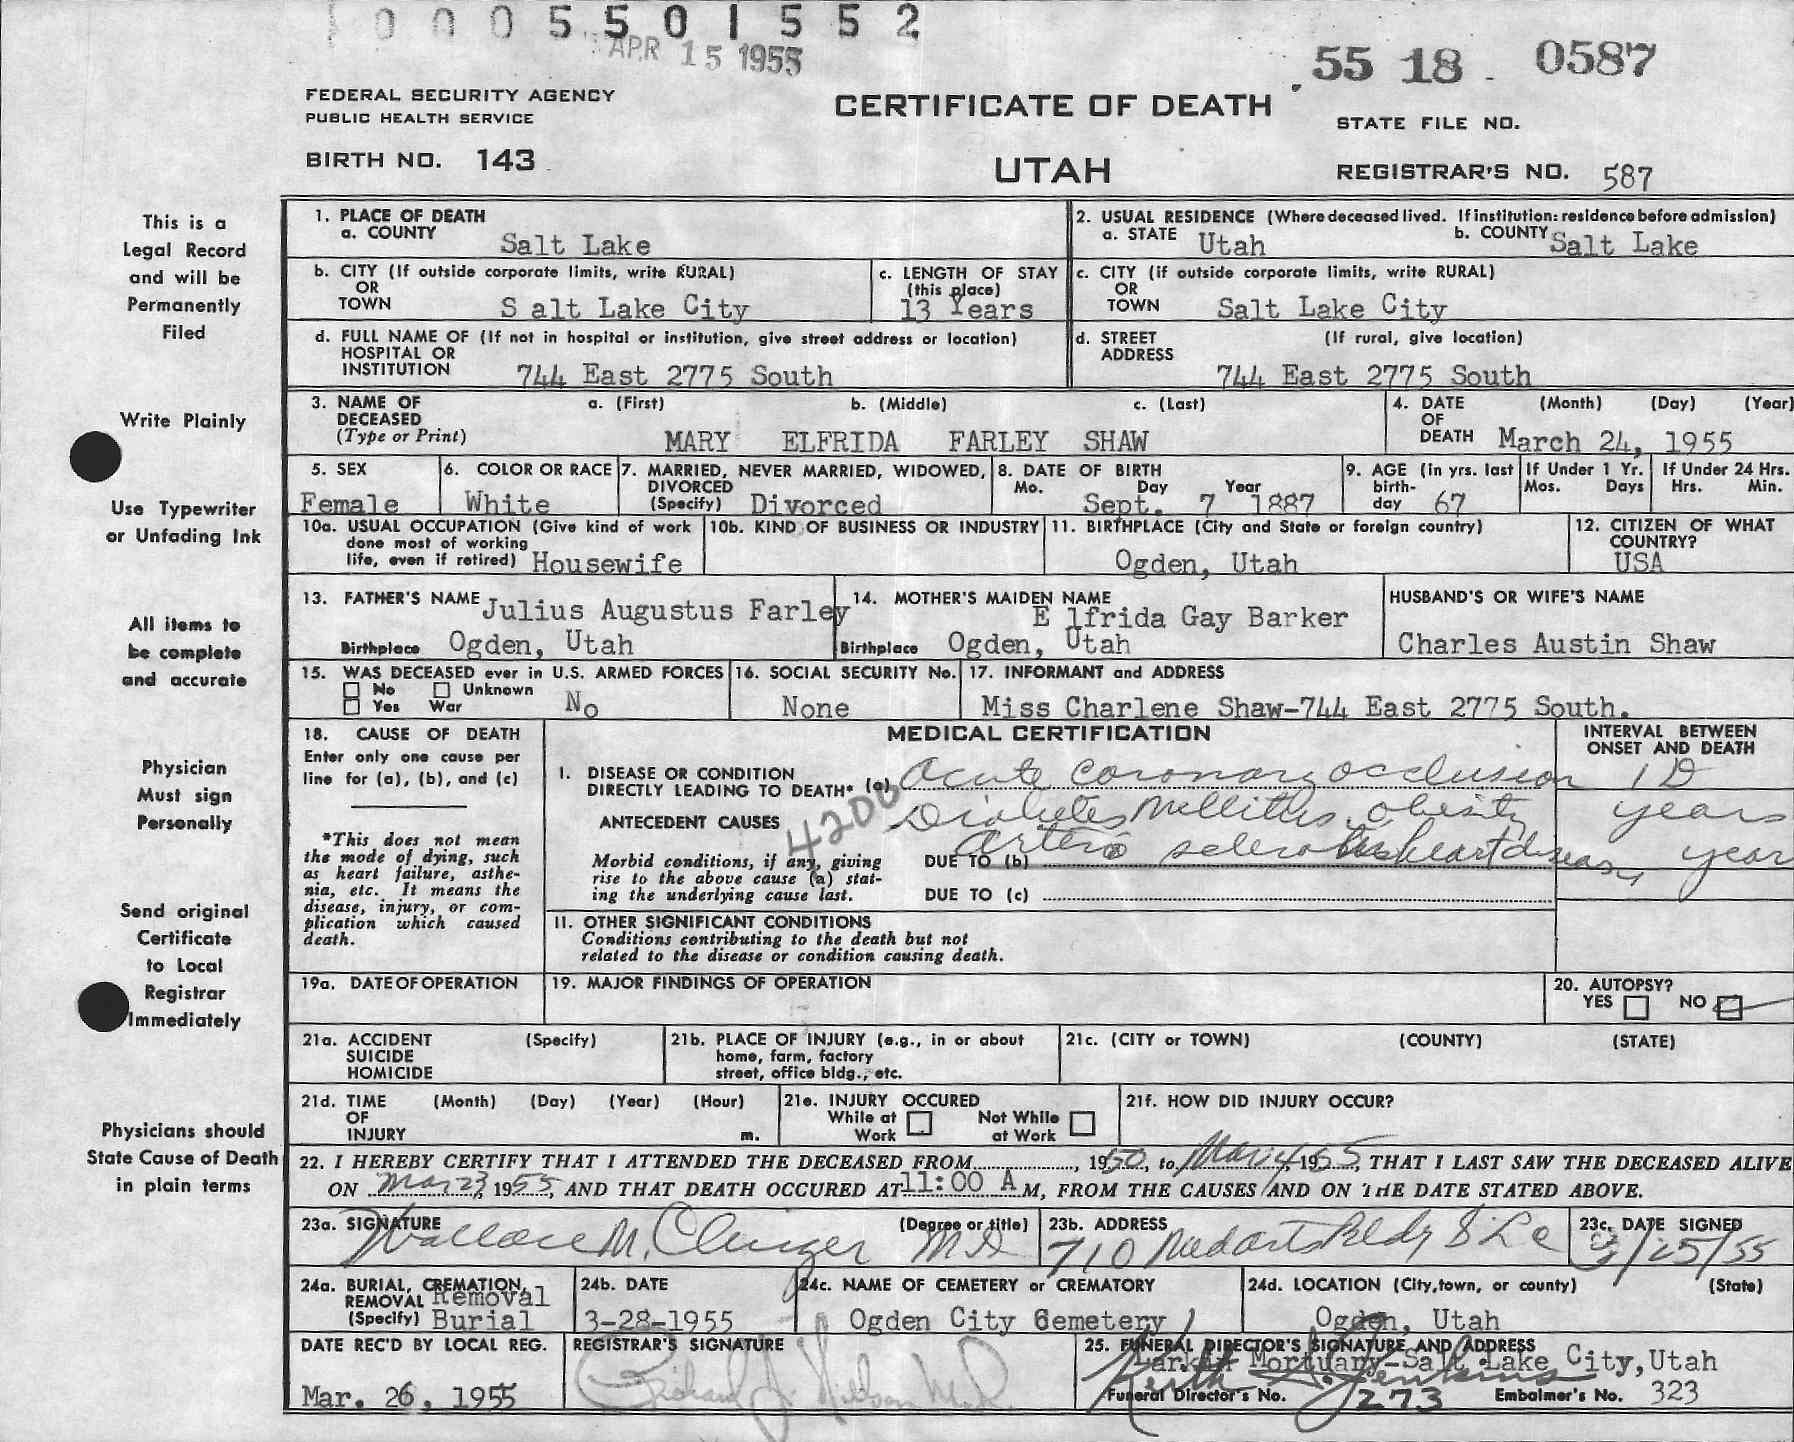 0005501552
APR 15 1955
55 18 0587
FEDERAL SECURITY AGENCY
PUBLIC HEALTH SERVICE
CERTIFICATE OF DEATH
STATE FILE NO.
BIRTH NO. 143
UTAH
REGISTRAR'S NO. 587
This is a
Legal Record
and will be
Permanently
Filed
Write Plainly
Use Typewriter
or Unfading Ink
All items to
be complete
and accurate
Physician
Must sign
Personally
Send original
Certificate
to Local
Registrar
Immediately
Physicians should
State Cause of Death
in plain terms
1. PLACE OF DEATH
a. COUNTY Salt Lake
2. USUAL RESIDENCE (Where deceased lived. If institution: residence before admission)
a. STATE Utah b. COUNTY Salt Lake
b. CITY (If outside corporate limits, write RURAL)
OR
TOWN S alt Lake City
c. LENGTH OF STAY
(this place)
13 Years
c. CITY (if outside corporate limits, write RURAL)
OR
TOWN Salt Lake City
d. FULL NAME OF (If not in hospital or institution, give street address or location)
HOSPITAL OR
INSTITUTION 744 East 2775 South
d. STREET (If rural, give location)
ADDRESS
744 East 2775 South
3. NAME OF a. (First) b. (Middle) c. (Last)
DECEASED
(Type or Print) MARY ELFRIDA FARLEY SHAW
4. DATE (Month) (Day) (Year)
OF
DEATH March 24, 1955
5. SEX
Female
6. COLOR OR RACE
White
7. MARRIED, NEVER MARRIED, WIDOWED,
DIVORCED
(Specify) Divorced
8. DATE OF BIRTH
Mo. Day Year
Sept. 7 1887
9. AGE (in yrs. last
birth-
day 67
If Under 1 Yr.
Mos. Days
If Under 24 Hrs.
Hrs. Min.
10a. USUAL OCCUPATION (Give kind of work
done most of working
life, even if retired) Housewife
10b. KIND OF BUSINESS OR INDUSTRY
11. BIRTHPLACE (City and State or foreign country)
Ogden, Utah
12. CITIZEN OF WHAT
COUNTRY?
USA
13. FATHER'S NAME Julius Augustus Farley
Birthplace Ogden, Utah
14. MOTHER'S MAIDEN NAME
E lfrida Gay Barker
Birthplace Ogden, Utah
HUSBAND'S OR WIFE'S NAME
Charles Austin Shaw
15. WAS DECEASED ever in U.S. ARMED FORCES
No Unknown
Yes War No
16. SOCIAL SECURITY No.
None
17. INFORMANT and ADDRESS
Miss Charlene Shaw-744 East 2775 South.
18. CAUSE OF DEATH
Enter only one cause per
line for (a), (b), and (c)
*This does not mean
the mode of dying, such
as heart failure, asthe-
nia, etc. It means the
disease, injury, or com-
plication which caused
death.
MEDICAL CERTIFICATION
INTERVAL BETWEEN
ONSET AND DEATH
I. DISEASE OR CONDITION
DIRECTLY LEADING TO DEATH* (a) Acute coronary occlusion 1 D
ANTECEDENT CAUSES Diabetes Mellitus, obesity years
4200
Morbid conditions, if any, giving
rise to the above cause (a) stat-
ing the underlying cause last.
DUE TO (b) Arterio sclerotic heart disease year
DUE TO (c)
II. OTHER SIGNIFICANT CONDITIONS
Conditions contributing to the death but not
related to the disease or condition causing death.
19a. DATE OF OPERATION
19. MAJOR FINDINGS OF OPERATION
20. AUTOPSY?
YES NO
21a. ACCIDENT (Specify)
SUICIDE
HOMICIDE
21b. PLACE OF INJURY (e.g., in or about
home, farm, factory
street, office bldg., etc.
21c. (CITY or TOWN) (COUNTY) (STATE)
21d. TIME (Month) (Day) (Year) (Hour)
OF
INJURY m.
21e. INJURY OCCURED
While at Not While
Work at Work
21f. HOW DID INJURY OCCUR?
22. I HEREBY CERTIFY THAT I ATTENDED THE DECEASED FROM, 1950, to Mar 1955, THAT I LAST SAW THE DECEASED ALIVE
ON Mar 23, 1955, AND THAT DEATH OCCURED AT 11:00 A M, FROM THE CAUSES AND ON THE DATE STATED ABOVE.
23a. SIGNATURE (Degree or title)
Wallace M. Clinger MD
23b. ADDRESS
710 Med Arts Bldg S L C
23c. DATE SIGNED
3/25/55
24a. BURIAL, CREMATION,
REMOVAL Removal
(Specify) Burial
24b. DATE
3-28-1955
24c. NAME OF CEMETERY or CREMATORY
Ogden City Cemetery
24d. LOCATION (City, town, or county) (State)
Ogden, Utah
DATE REC'D BY LOCAL REG.
Mar. 26, 1955
REGISTRAR'S SIGNATURE
25. FUNERAL DIRECTOR'S SIGNATURE AND ADDRESS
Larkin Mortuary-Salt Lake City, Utah
Keith A. Jenkins
Funeral Director's No. 273 Embalmer's No. 323